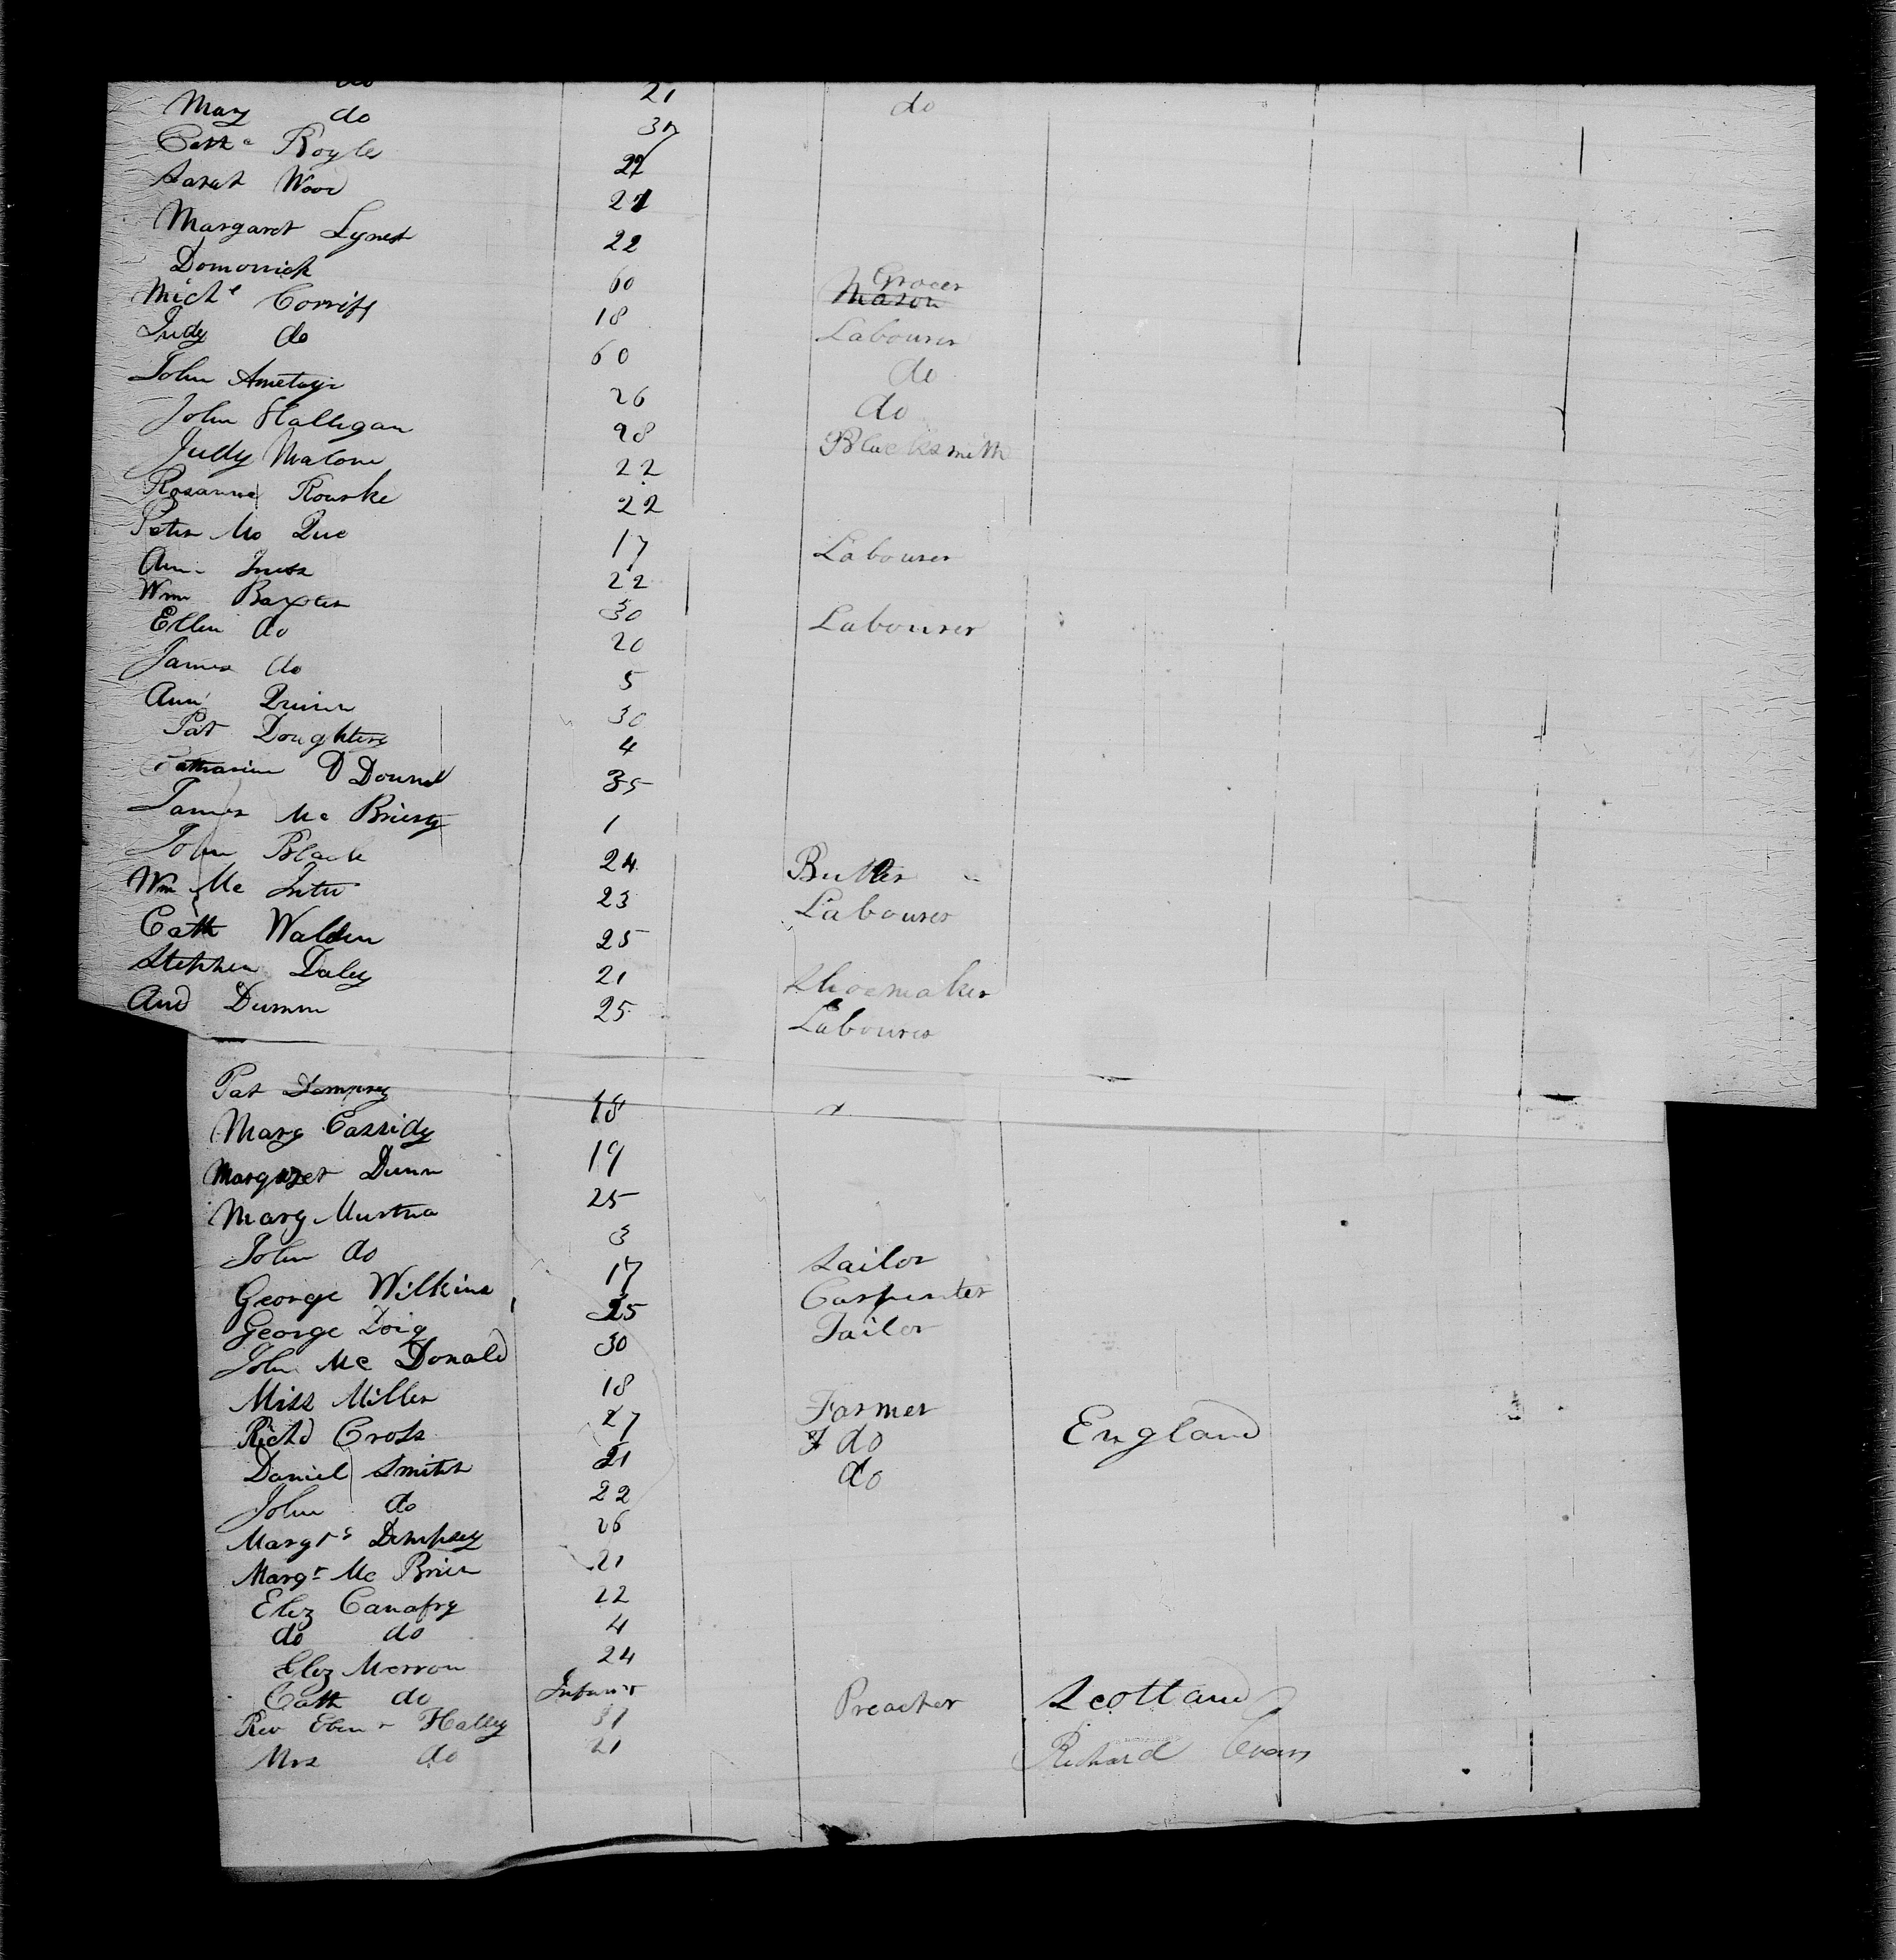 do 21 do
Mary do 30
Cath a Royle 22
Sarah Wood 21
Margaret Lynch 22
Domonick 60 Grocer Mason
Mich l 18 Labourer
Judy do 60 do
John 26 do
John Halligan 28 Blacksmith
Judy Malone 22
Rosanna Rourke 22
Peter Mc Que 17 Labourer
Ann 22
Wm Baxter 30 Labourer
Ellen do 20
James do 5
Ann Quinn 30
Pat Doughtery 4
Catharine O Donnel 35
James Mc 1
John Black 24 Butler
Wm Mc 23 Labourer
Cath Walden 25
Stephen Daley 21 Shoemaker
And Dumm 25 Labourer
Pat Dempsey 18
Mary Cassidy 19
Margaret Dunn 25
Mary Murtha 3
John do 17 Sailor
George Wilkins 25 Carpenter
George Doig 30 Tailor
John Mc Donald
Miss Miller 18
Richd Cross 27 Farmer England
Daniel Smith 21 do
John do 22 do
Margt Dempsey 26
Margt Mc Brien 21
Eliz 22
do do 4
Eliz Merron 24
Cath do Infant
Rev Eben r Halley 31 Preacher Scotland
Mrs do 21
Richard Evans